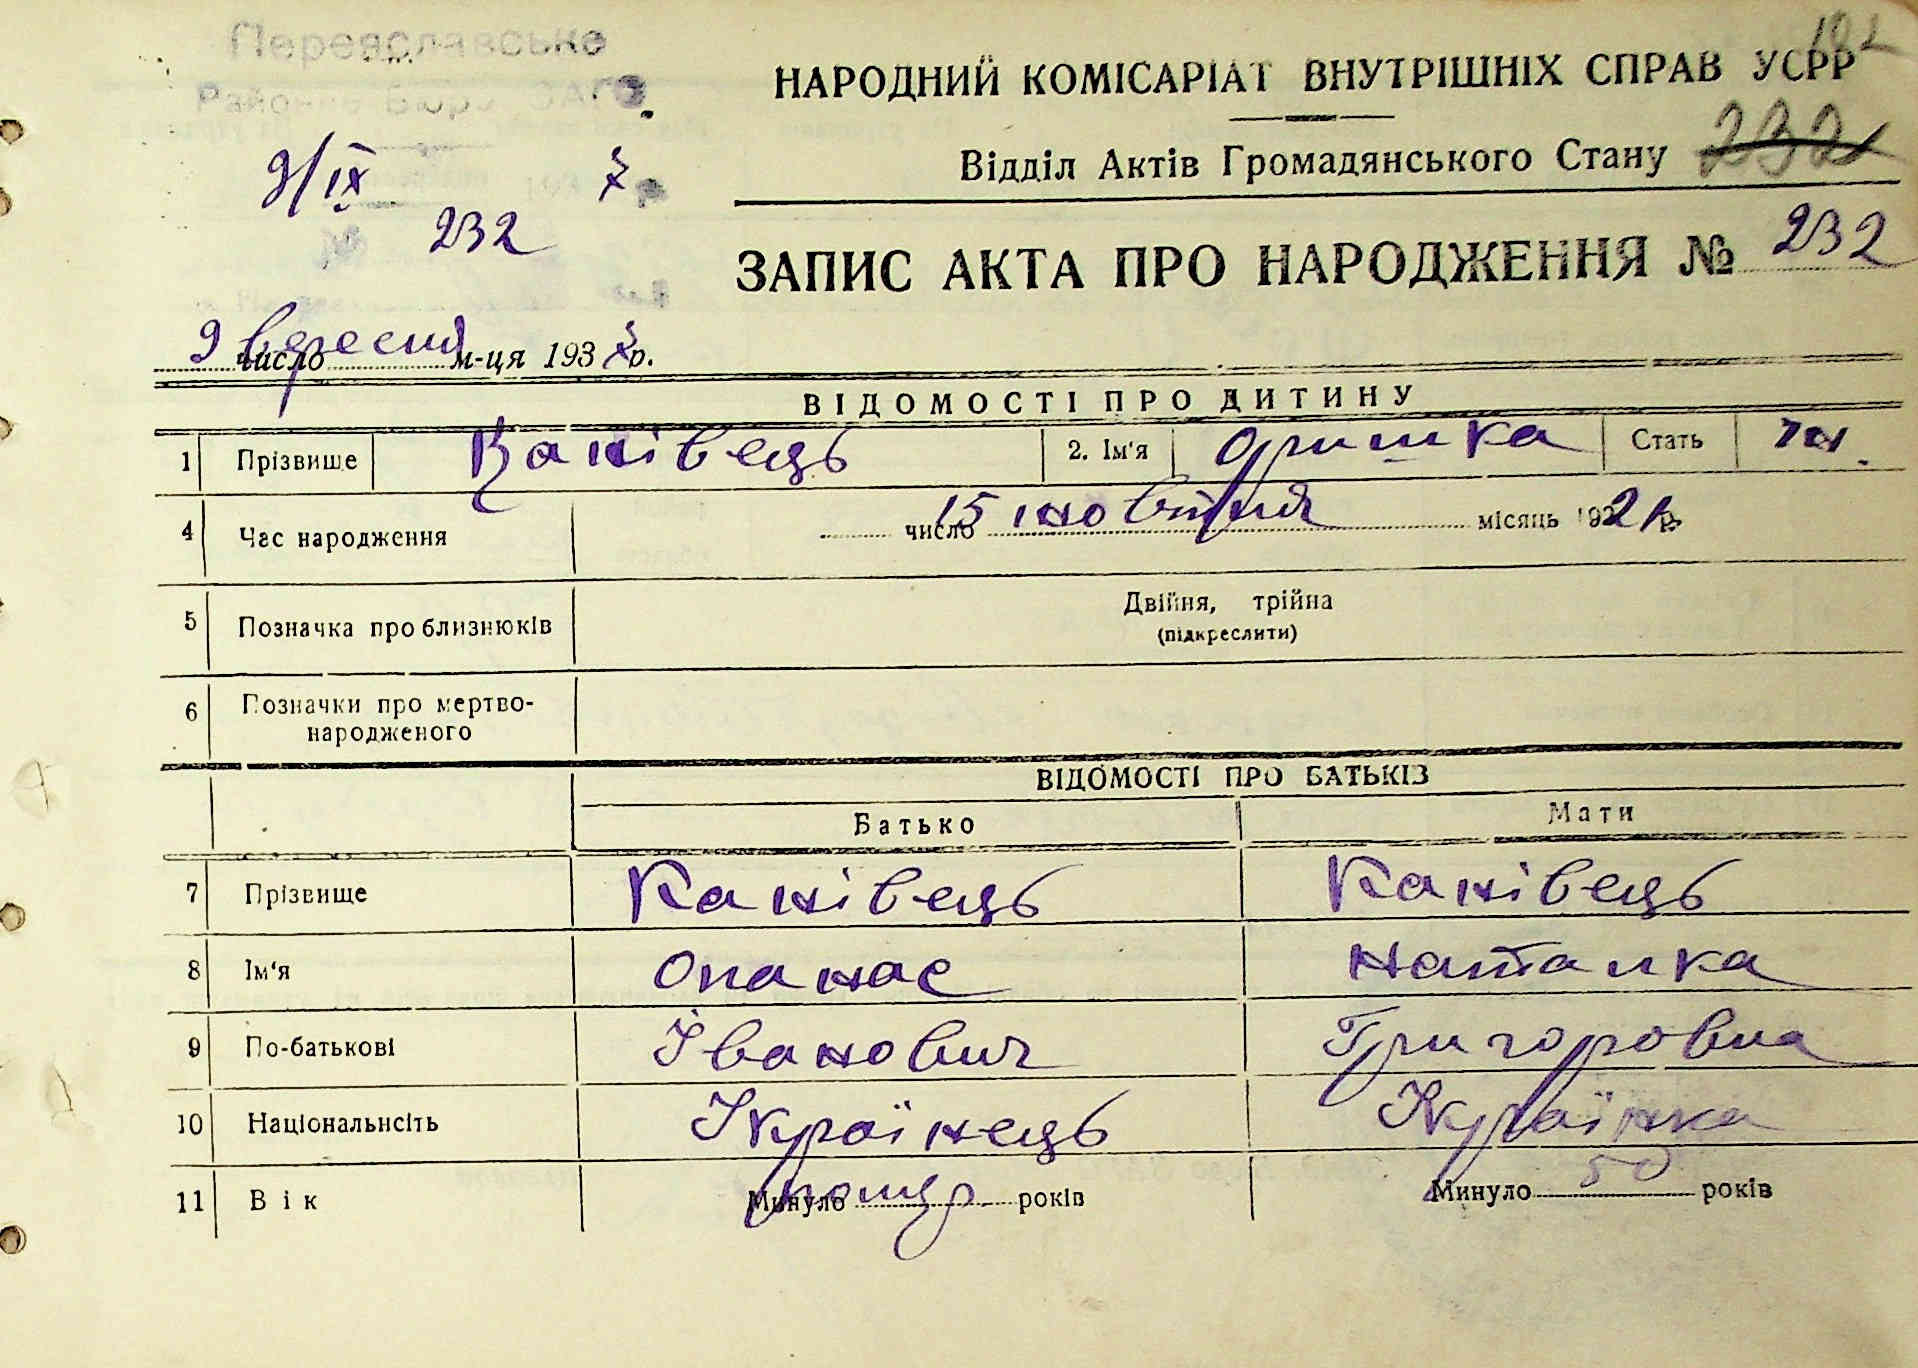 Переяславське
Районне Бюро ЗАГС
102
НАРОДНИЙ КОМІСАРІАТ ВНУТРІШНІХ СПРАВ УСРР
Відділ Актів Громадянського Стану 232
9/IX
232
ЗАПИС АКТА ПРО НАРОДЖЕННЯ № 232
9 число вересня м-ця 193 р.
ВІДОМОСТІ ПРО ДИТИНУ
1 Прізвище Канівець 2. Ім'я Оришка Стать
4 Час народження число 15 жовтня місяць 192 р.
5 Позначка про близнюків Двійня, трійна
(підкреслити)
6 Позначки про мертво-
народженого
ВІДОМОСТІ ПРО БАТЬКІВ
Батько Мати
7 Прізвище Канівець Канівець
8 Ім'я Опанас Наталка
9 По-батькові Іванович Григоровна
10 Національність Українець Українка
11 Вік Минуло помер років Минуло 50 років